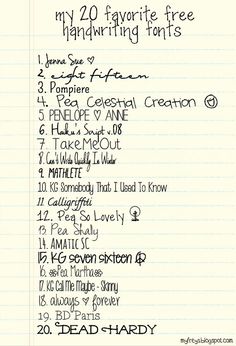 my 20 favorite free
handwriting fonts
1. Jenna Sue ♡
2. eight fifteen
3. Pompiere
4. Pea Celestial Creation
5. PENELOPE ♡ ANNE
6. Haiku's Script v.08
7. TakeMeOut
8. Can't Write Usually In Winter
9. MATHLETE
10. KG Somebody That I Used To Know
11. Calligraffiti
12. Pea So Lovely
13. Pea Shaly
14. AMATIC SC
15. KG seven sixteen
16. Pea Martha
17. KG Call Me Maybe - Skinny
18. always ♡ forever
19. BD Paris
20. DEAD HARDY
myfreys.blogspot.com